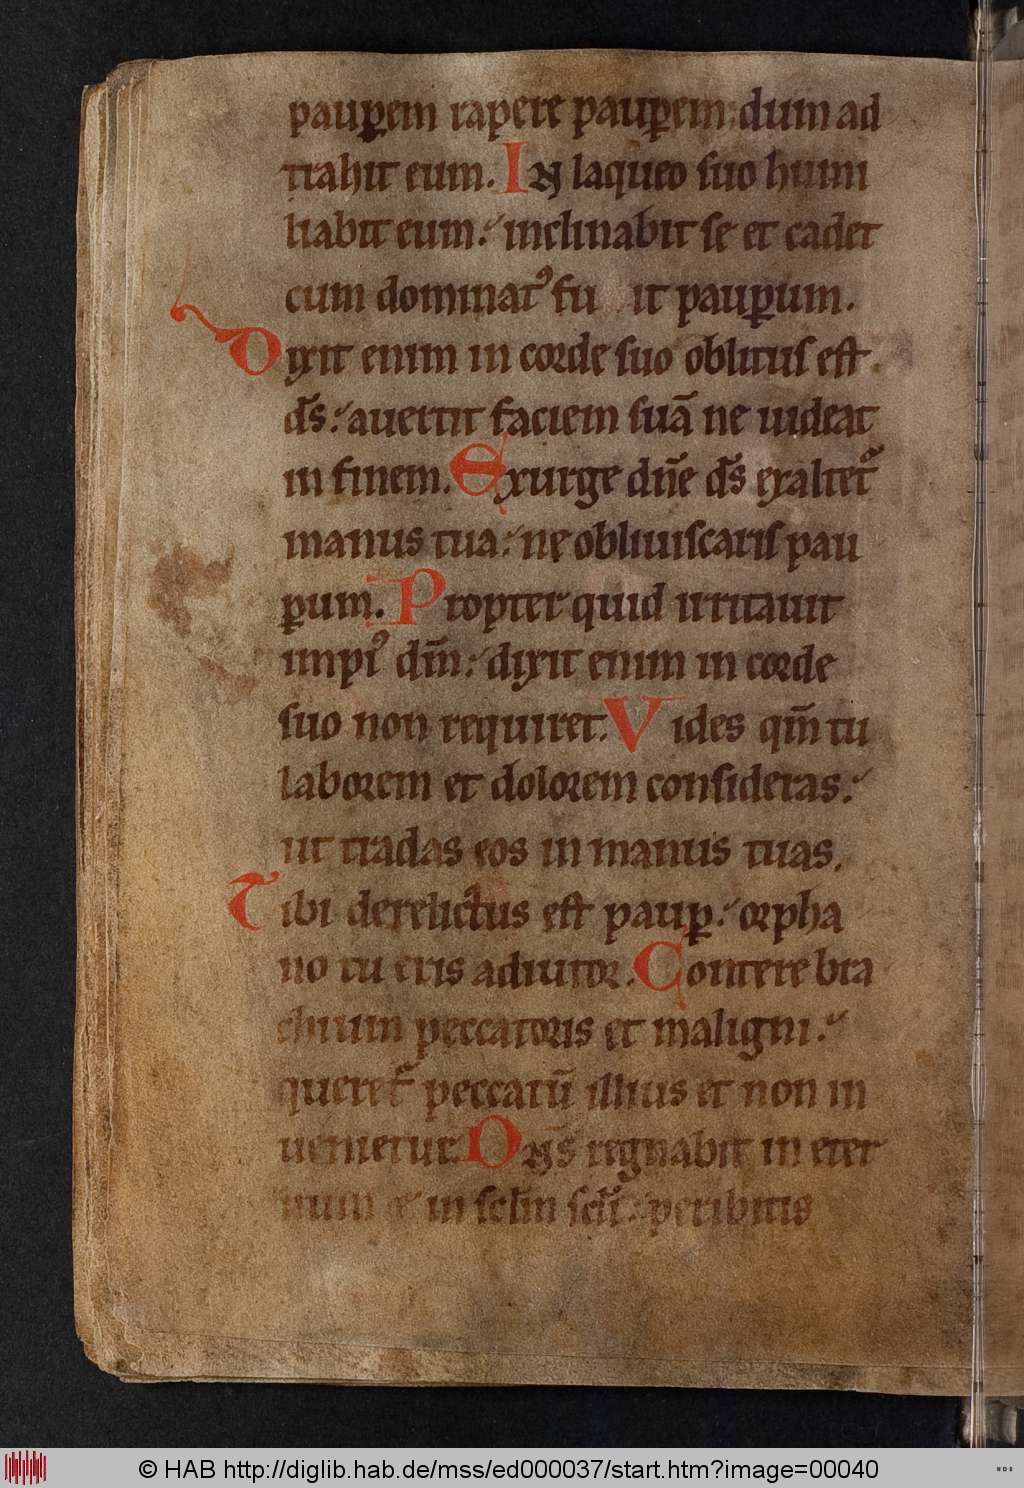 pauꝑem rapere pauꝑem; dum ad
trahit eum. IN laqueo suo humi
liabit eum: inclinabit se et cadet
cum dominatꝰ fu it pauꝑum.
Dixit enim in corde suo oblitus est
ds̄: auertit faciem suā ne uideat
in finem. Exurge dn̄e ds̄ exaltet᷑
manus tua: ne obliuiscaris pau
ꝑum. Propter quid irritauit
impiꝰ dm̄: dixit enim in corde
suo non requiret. Vides qm̄ tu
laborem et dolorem consideras:
ut tradas eos in manus tuas.
Tibi derelictus est pauꝑ: orpha
no tu eris adiutor. Contere bra
chium peccatoris et maligni:
queret᷑ peccatū illius et non in
uenietur. DN̄S regnabit in eter
num & in sclm̄ scl̄i: peribitis
© HAB http://diglib.hab.de/mss/ed000037/start.htm?image=00040